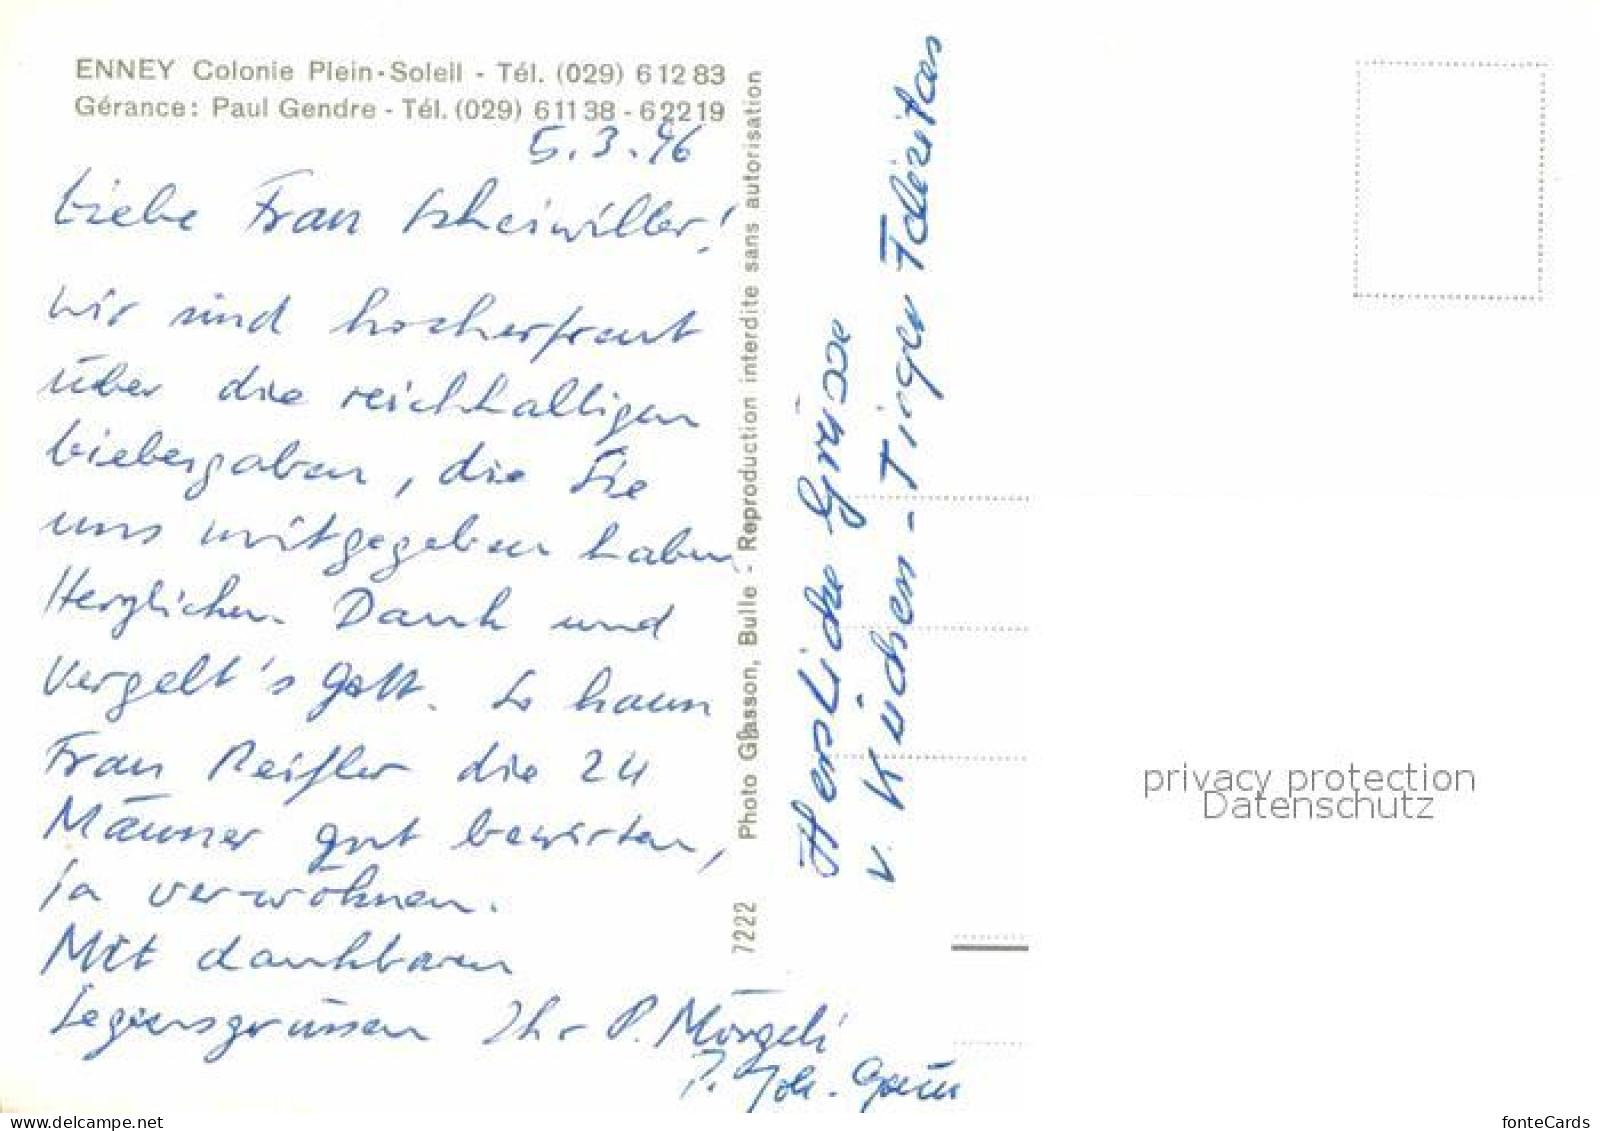 ENNEY Colonie Plein-Soleil - Tél. (029) 6 12 83
Gérance: Paul Gendre - Tél. (029) 6 11 38 - 6 22 19
5.3.96
Liebe Frau Scheiwiller!
Wir sind hocherfreut
über die reichhaltigen
Liebesgaben, die Sie
uns mitgegeben haben
Herzlichen Dank und
Vergelt's Gott. So kann
Frau Reifler die 24
Männer gut bewirten,
ja verwöhnen.
Mit dankbaren
Segensgrüssen Ihr P. Mörgeli
P. Joh.
7222 Photo Glasson, Bulle - Reproduction interdite sans autorisation
Hersliche Grüsse
v. Küchen-Tiger Felizitas
privacy protection
Datenschutz
www.delcampe.net
fonteCards